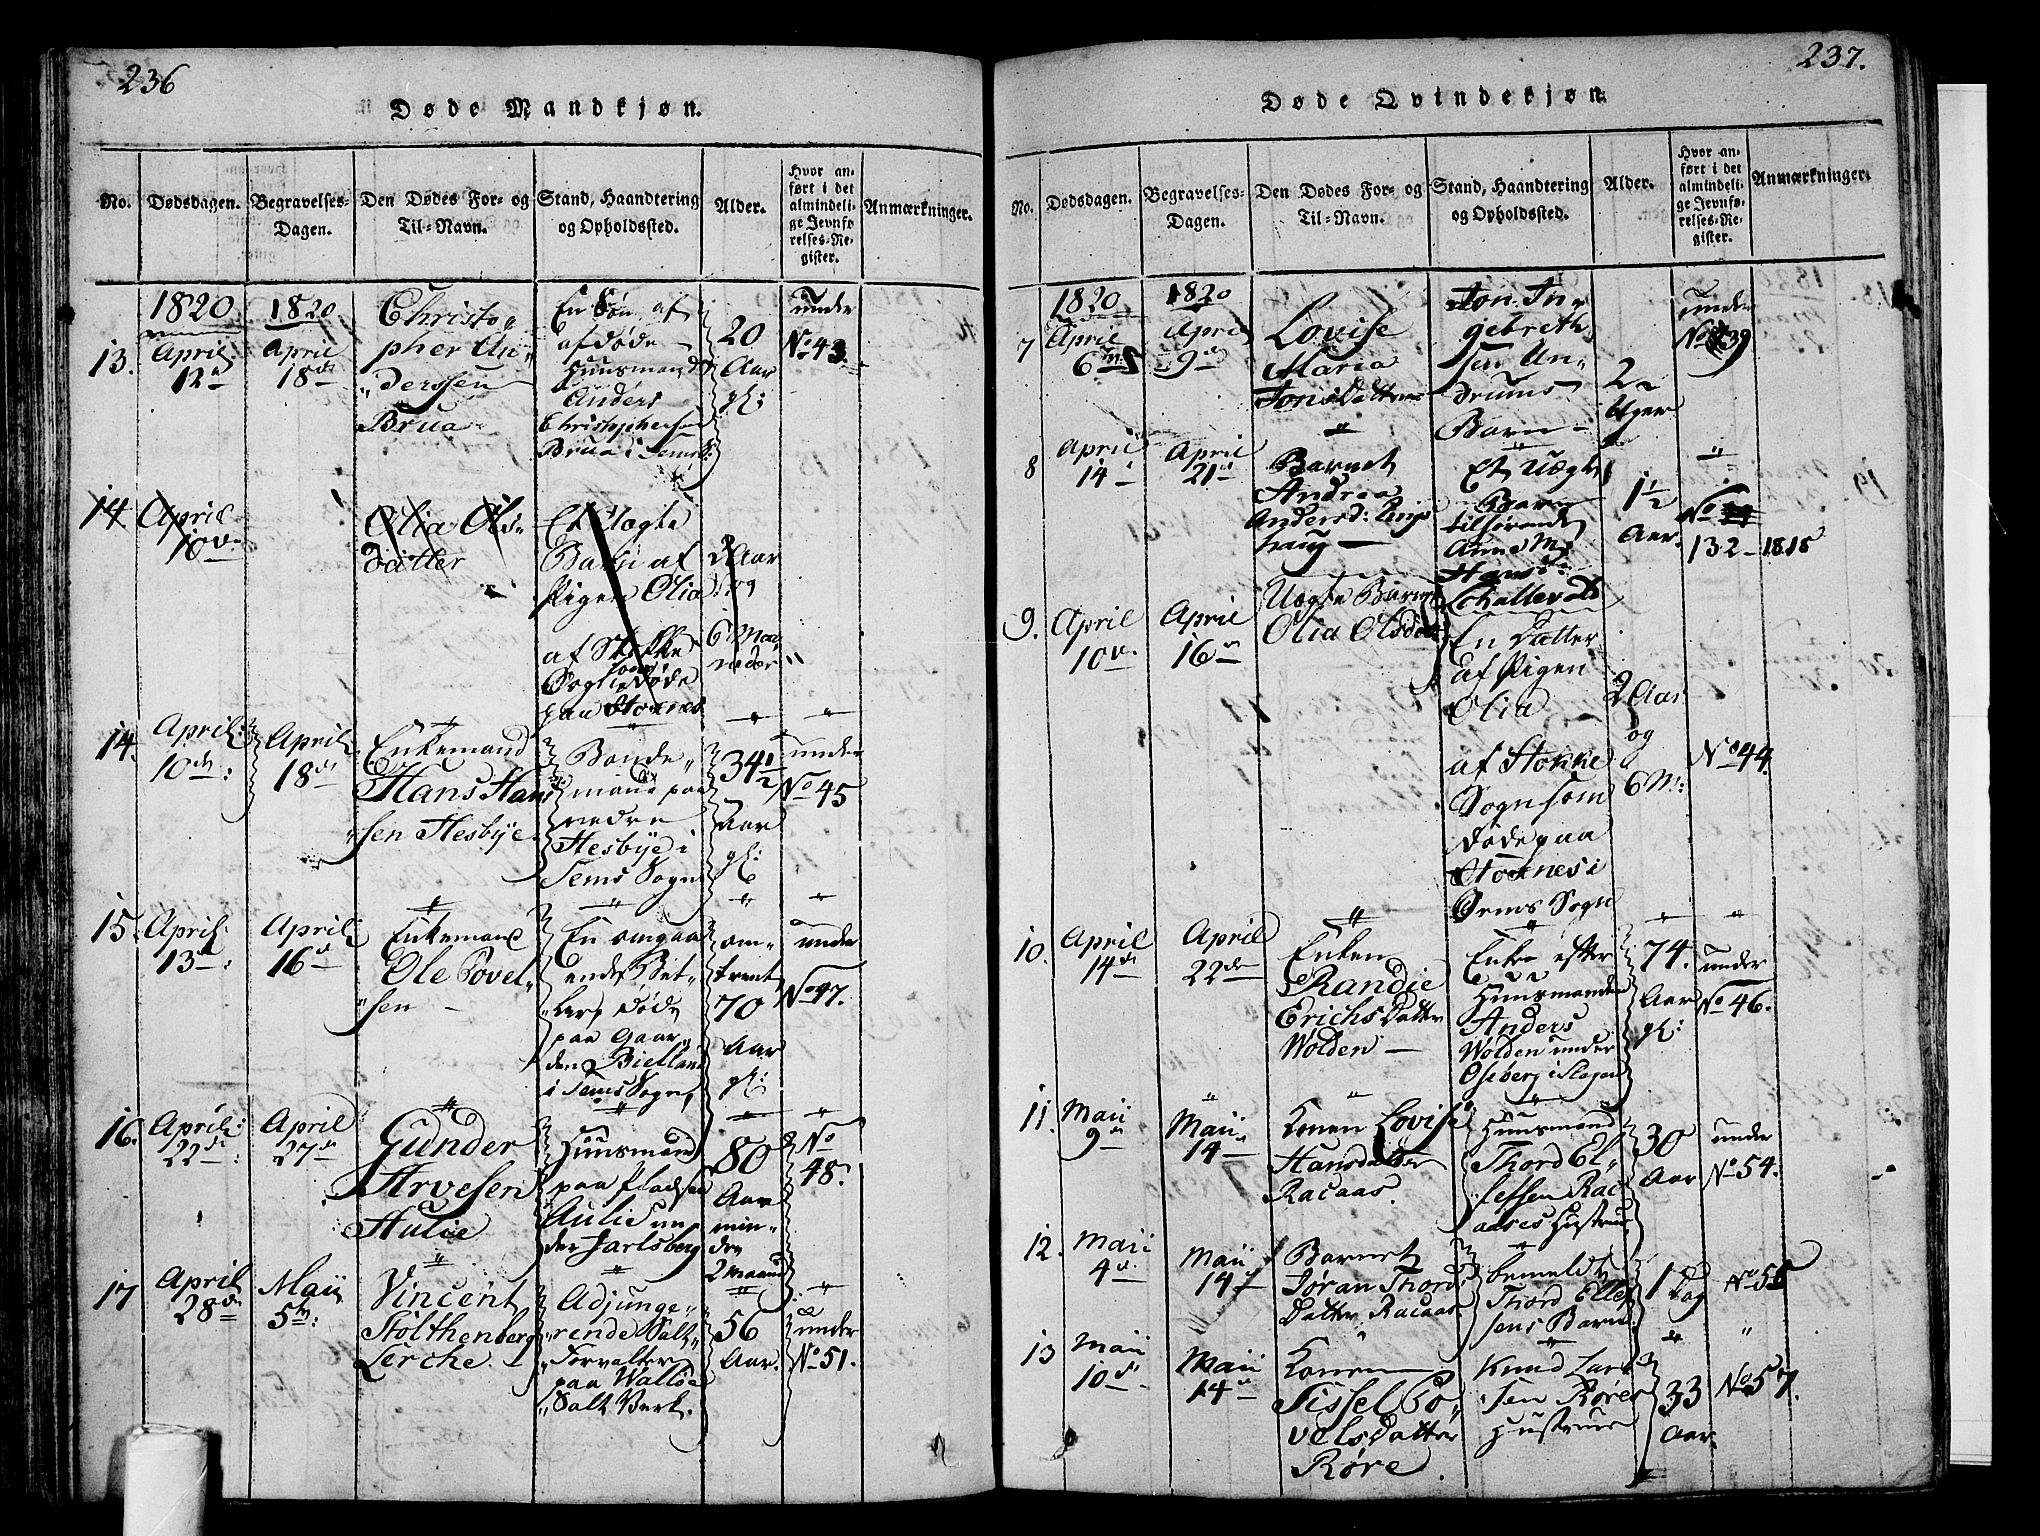 236
Døde Mandkjøn.
No.
Dødsdagen.
Begravelses-
Dagen.
Den Dødes For- og
Til-Navn.
Stand, Haandtering
og Opholdssted.
Alder.
Hvor an-
ført i det
almindeli-
ge Jevnfø-
relses-Re-
gister.
Anmærkninger.
13.
1820
April
12
1820
April
18
Christo
pher An
derssen
Brua
En Søn af
afdøde
Huusmand
Anders
Christophersen
Brua i Sem
20
Aar
gl:
under
No 43.
14
April
10
Olia Ols
datter
Et Uægte
Barn af
Pigen Olia
af Stokke
Sogn som døde
paa Stoknes
2 Aar
og
6 Maa
neder
14.
April
10
April
18
Enkemand
Hans Han
sen Hesbye
Bonde
mand paa
nedre
Hesbye i
Sems Sogn
34½
Aar
gl:
under
No 45
15.
April
13
April
16
Enkemand
Ole Povel
sen
En omgaa
ende Bet
ler døde
paa Gaar
den Bielland
i Sems Sogn
om
trent
70
Aar
gl:
under
No 47.
16.
April
22
April
27
Gunder
Arvesen
Aulie
Huusmand
paa Pladsen
Aulie un
der Jarlsberg
80
Aar
min
dre
2 Maaned
No
48.
17
April
28
Maij
5
Vincent
Stolthenberg
Lerche
Adjunge
rende Salt
Forvalter
paa Walløe
Salt Verk.
56
Aar.
under
No 51.
237.
Døde Qvindekjøn.
No.
Dødsdagen.
Begravelses-
Dagen.
Den Dødes For- og
Til-Navn.
Stand, Haandtering
og Opholdssted.
Alder.
Hvor an-
ført i det
almindeli-
ge Jevnfø-
relses-Re-
gister.
Anmærkninger.
7
1820
April
6
1820
April
9
Lovise
Maria
Jons Datter
Jon In
gebreth
sen An
drums
Barn
2
Uger
under
No 39
8
April
14
April
21
Barnet
Andrea
Andersd:
haug
Et Uægte
Barn
tilhørende
Anne M
Hans
Schallevold
1½
Aar.
No
132 - 1818
9.
April
10
April
16
Uægte Barnet
Olia Olsdat
En Datter
af Pigen
Olia
af Stokke
Sogn som
døde paa
Stoknes i
Sems Sogn
2 Aar
og
6 M:
No 44.
10.
April
14
April
22
Enken
Randie
Erichs Datter
Wolden
Enke efter
Huusmanden
Anders
Wolden under
Oseberg i Slagen
74.
Aar
gl:
under
No 46.
11.
Maii
9
Maii
14
Konen Lovise
Hansdatter
Racaas.
Huusmand
Thord El
lefsen Rac
aases Hustrue
30
Aar
under
No 54.
12.
Maii
4
Maii
14
Barnet
Jøran Thords
Datter Racaas
bemeldte
Thord Ellef
sens Barn
1
Dag
No 55
13
Maii
10
Maii
14
Konen
Sissel Po
vels Datter
Røre
Knud Lar
sen Røres
Hustrue
33
Aar.
No 57.